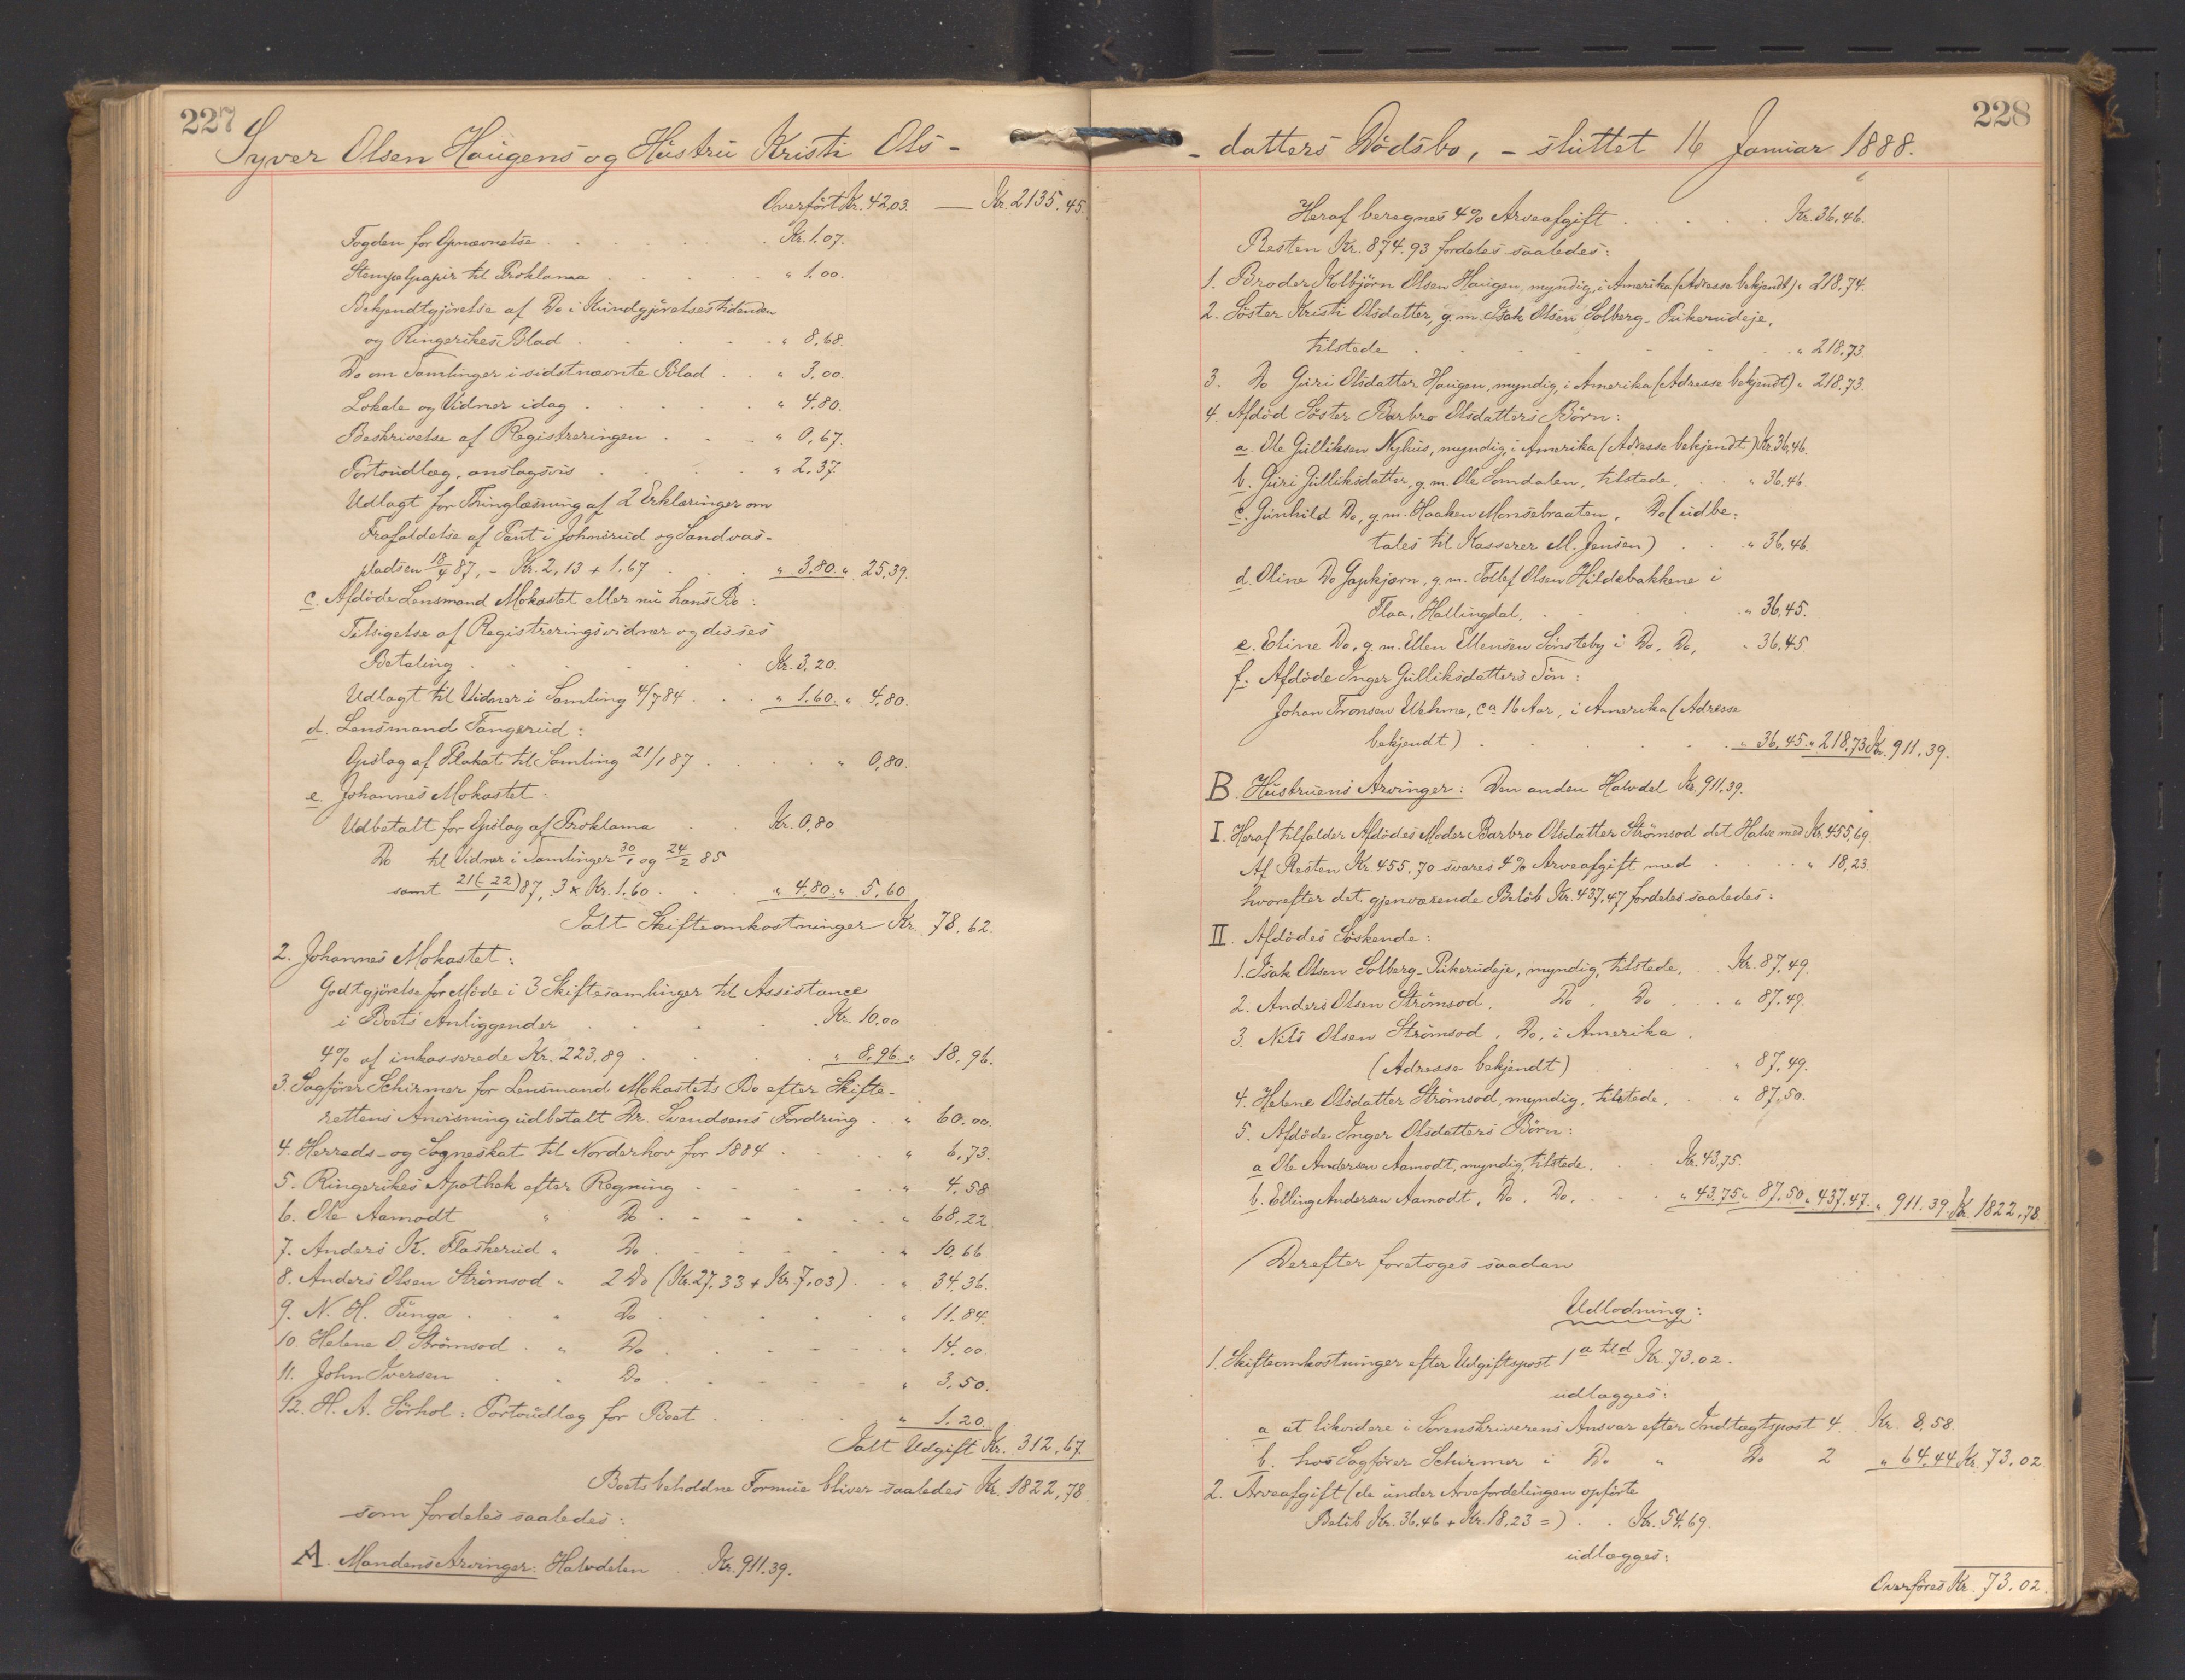 227
Syver Olsen Haugens og Hustru Kristi Ols-
Overført Kr. 42.03. — Kr. 2135.45.
Fogden for Opnævnelse . . . . . . Kr. 1.07.
Stempelpapir til Proklama . . . . " 1.00.
Bekjendtgjørelse af Do i Kundgjørelsestidenden
og Ringerikes Blad . . . . . " 8,68.
Do om Samlinger i sidstnævnte Blad . . " 3,00.
Lokale og Vidner idag . . . . . " 4.80.
Beskrivelse af Registreringen . . . " 0,67.
Portoudlæg, anslagsvis . . . . " 2,37.
Udlagt for Thinglæsning af 2 Erklæringer om
Frafaldelse af Pant i Johnsrud og Sandvas-
pladsen 18/4 87, - Kr. 2,13 + 1.67 . . . " 3,80. " 25,39.
c. Afdøde Lensmand Mokastet eller nu hans Bo:
Tilsigelse af Registreringsvidner og disses
Betaling . . . . . . Kr. 3.20.
Udlagt til Vidner i Samling 4/7 84 . . . " 1.60. " 4,80.
d. Lensmand Tangerud:
Opslag af Plakat til Samling 21/1 87 . . . . . " 0,80.
e. Johannes Mokastet:
Udbetalt for Opslag af Proklama . . Kr. 0,80
Do til Vidner i Samlinger 30/1 og 24/2 85
samt 21(-22)/1 87, 3 x Kr. 1.60 . . . " 4,80. " 5,60
Ialt Skifteomkostninger Kr. 78.62.
2. Johannes Mokastet:
Godtgjørelse for Møde i 3 Skiftesamlinger til Assistance
i Boets Anliggender . . . . . Kr. 10,00
4% af inkasserede Kr. 223.89 . . . . . " 8,96. " 18,96.
3. Sagfører Schirmer for Lensmand Mokastets Bo efter Skifte-
rettens Anvisning udbetalt Dr. Svendsens Fordring . . " 60.00.
4. Herreds- og Sogneskat til Norderhov for 1884 . . . . " 6,73.
5. Ringerikes Apothek efter Regning . . . . . " 4,58.
6. Ole Aamodt " Do . . . . . . " 68,22.
7. Anders K. Flaskerud " Do . . . . . . " 10,66.
8. Anders Olsen Strømsod " 2 Do (Kr. 27,33 + Kr. 7,03) . . " 34,36.
9. N. H. Tunga . . " Do . . . . . . " 11.84.
10. Helene O. Strømsod . " Do . . . . . . " 14.00.
11. John Iversen . . " Do . . . . . . " 3,50.
12. H. A. Sørhol: Portoudlæg for Boet . . . . . " 1.20
Ialt Udgift Kr. 312,67.
Boets beholdne Formue bliver saaledes Kr. 1822,78.
som fordeles saaledes:
A. Mandens Arvinger: Halvdelen . Kr. 911.39.
228
-datters Dødsbo, - sluttet 16 Januar 1888.
Heraf beregnes 4% Arveafgift . . . . . Kr. 36,46.
Resten Kr. 874.93 fordeles saaledes:
1. Broder Kolbjørn Olsen Haugen, myndig, i Amerika (Adresse bekjendt) " 218,74.
2. Søster Kristi Olsdatter, g. m. Isak Olsen Solberg-Pukerudeje,
tilstede . . . . . . . " 218,73
3. Do Guri Olsdatter Haugen, myndig, i Amerika (Adresse bekjendt) " 218,73.
4. Afdød Søster Barbro Olsdatters Børn:
a. Ole Gulliksen Nyhus, myndig, i Amerika (Adresse bekjendt) Kr. 36,46.
b. Guri Gulliksdatter, g. m. Ole Somdalen, tilstede, . . " 36,46.
c. Gunhild Do, g. m. Haaken Monsebraaten, Do (udbe-
tales til Kasserer M. Jensen) . . " 36,46.
d. Oline Do Gapkjærn, g. m. Tollef Olsen Hildebakkene i
Flaa, Hallingdal, . . . . . " 36,45.
e. Eline Do, g. m. Ellen Ellensen Sønsteby i Do, Do, " 36,45
f. Afdøde Inger Gulliksdatters Søn:
Johan Tronsen Wehme, ca 16 Aar, i Amerika (Adresse
bekjendt) . . . . . . " 36,45. " 218,73 Kr. 911,39.
B. Hustruens Arvinger: Den anden Halvdel Kr. 911.39.
I. Heraf tilfalder Afdødes Moder Barbro Olsdatter Strømsod det Halve med Kr. 455,69.
Af Resten Kr. 455,70 svares 4% Arveafgift med . . . . " 18,23.
hvorefter det gjenværende Beløb Kr. 437,47 fordeles saaledes:
II. Afdødes Søskende:
1. Isak Olsen Solberg-Pukerudeje, myndig, tilstede, . . Kr. 87,49.
2. Anders Olsen Strømsod, Do, Do . . . " 87.49.
3. Nils Olsen Strømsod, Do, i Amerika .
(Adresse bekjendt) . . . " 87,49.
4. Helene Olsdatter Strømsod, myndig, tilstede, . . " 87,50.
5. Afdøde Inger Olsdatters Børn:
a. Ole Andersen Aamodt, myndig, tilstede, . . Kr. 43,75.
b. Elling Andersen Aamodt, Do, Do, . . . " 43,75 " 87,50 " 437,47. " 911.39. Kr. 1822,78.
Derefter foretoges saadan
Udlodning:
1. Skifteomkostninger efter Udgiftspost 1 a til d Kr. 73.02.
udlægges:
a. at likvidere i Sorenskriverens Ansvar efter Indtægtspost 4. Kr. 8,58.
b. hos Sagfører Schirmer i Do " Do 2 " 64,44 Kr. 73,02.
2. Arveafgift (de under Arvefordelingen opførte
Beløb Kr. 36,46 + Kr. 18,23 =) . . Kr. 54,69.
udlægges:
Overføres Kr. 73.02.